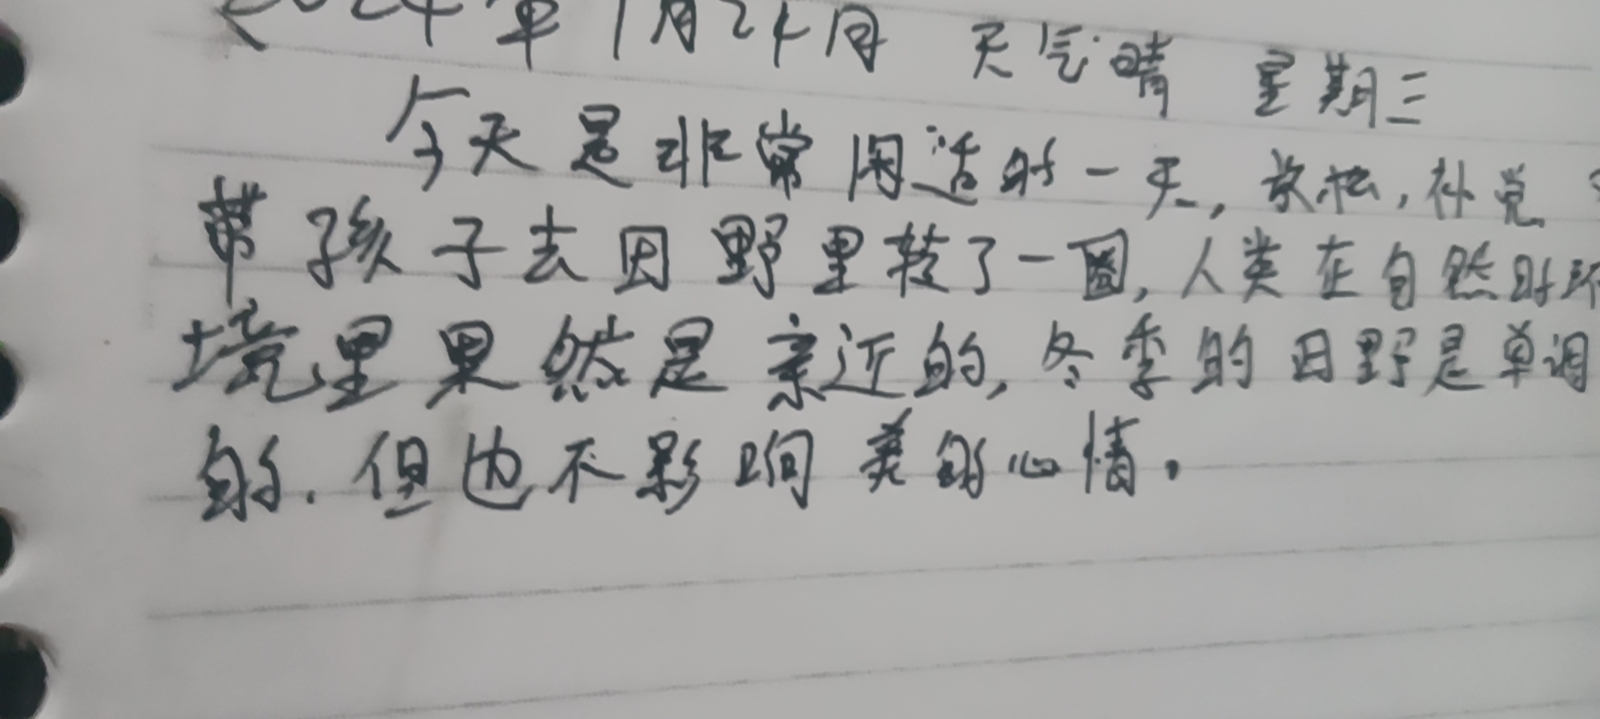 2024年1月24日 天气晴 星期三
今天是非常闲适的一天,放松,补觉
带孩子去田野里转了一圈,人类在自然的环
境里果然是亲近的,冬季的田野是单调
的.但也不影响美的心情。